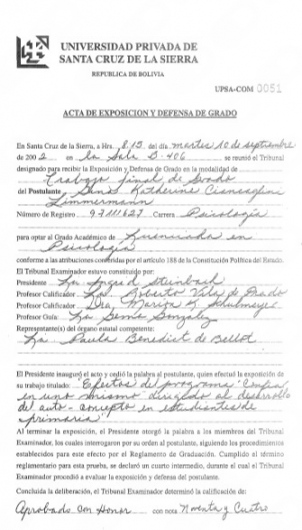 UNIVERSIDAD PRIVADA DE
SANTA CRUZ DE LA SIERRA
REPUBLICA DE BOLIVIA
UPSA-COM 0051
ACTA DE EXPOSICION Y DEFENSA DE GRADO
En Santa Cruz de la Sierra, a Hrs. 8:15 del día, martes 10 de septiembre
de 2002 en la Sala D-406 se reunió el Tribunal
designado para recibir la Exposición y Defensa de Grado en la modalidad de
Trabajo final de Grado
del Postulante Katherine
Zimmermann
Número de Registro 97111627 Carrera Psicología
para optar el Grado Académico de Licenciada en
Psicología
conforme a las atribuciones conferidas por el artículo 188 de la Constitución Política del Estado.
El Tribunal Examinador estuvo constituido por:
Presidente Ingrid Steinbach
Profesor Calificador Roberto Vila de Prado
Profesor Calificador Dra. Marion K.
Profesor Guía: González
Representante(s) del órgano estatal competente:
Paula Benedict de Bellot
El Presidente inauguró el acto y cedió la palabra al postulante, quien efectuó la exposición de
su trabajo titulado: Efectos del programa "Confiar
en uno mismo" dirigido al desarrollo
del auto-concepto en estudiantes de
primaria
Al terminar la exposición, el Presidente otorgó la palabra a los miembros del Tribunal
Examinador, los cuales interrogaron por su orden al postulante, siguiendo los procedimientos
establecidos para este efecto por el Reglamento de Graduación. Cumplido el término
reglamentario para esta prueba, se declaró un cuarto intermedio, durante el cual el Tribunal
Examinador procedió a evaluar la exposición y defensa del postulante.
Concluida la deliberación, el Tribunal Examinador determinó la calificación de:
Aprobado con Honor con nota Noventa y Cuatro